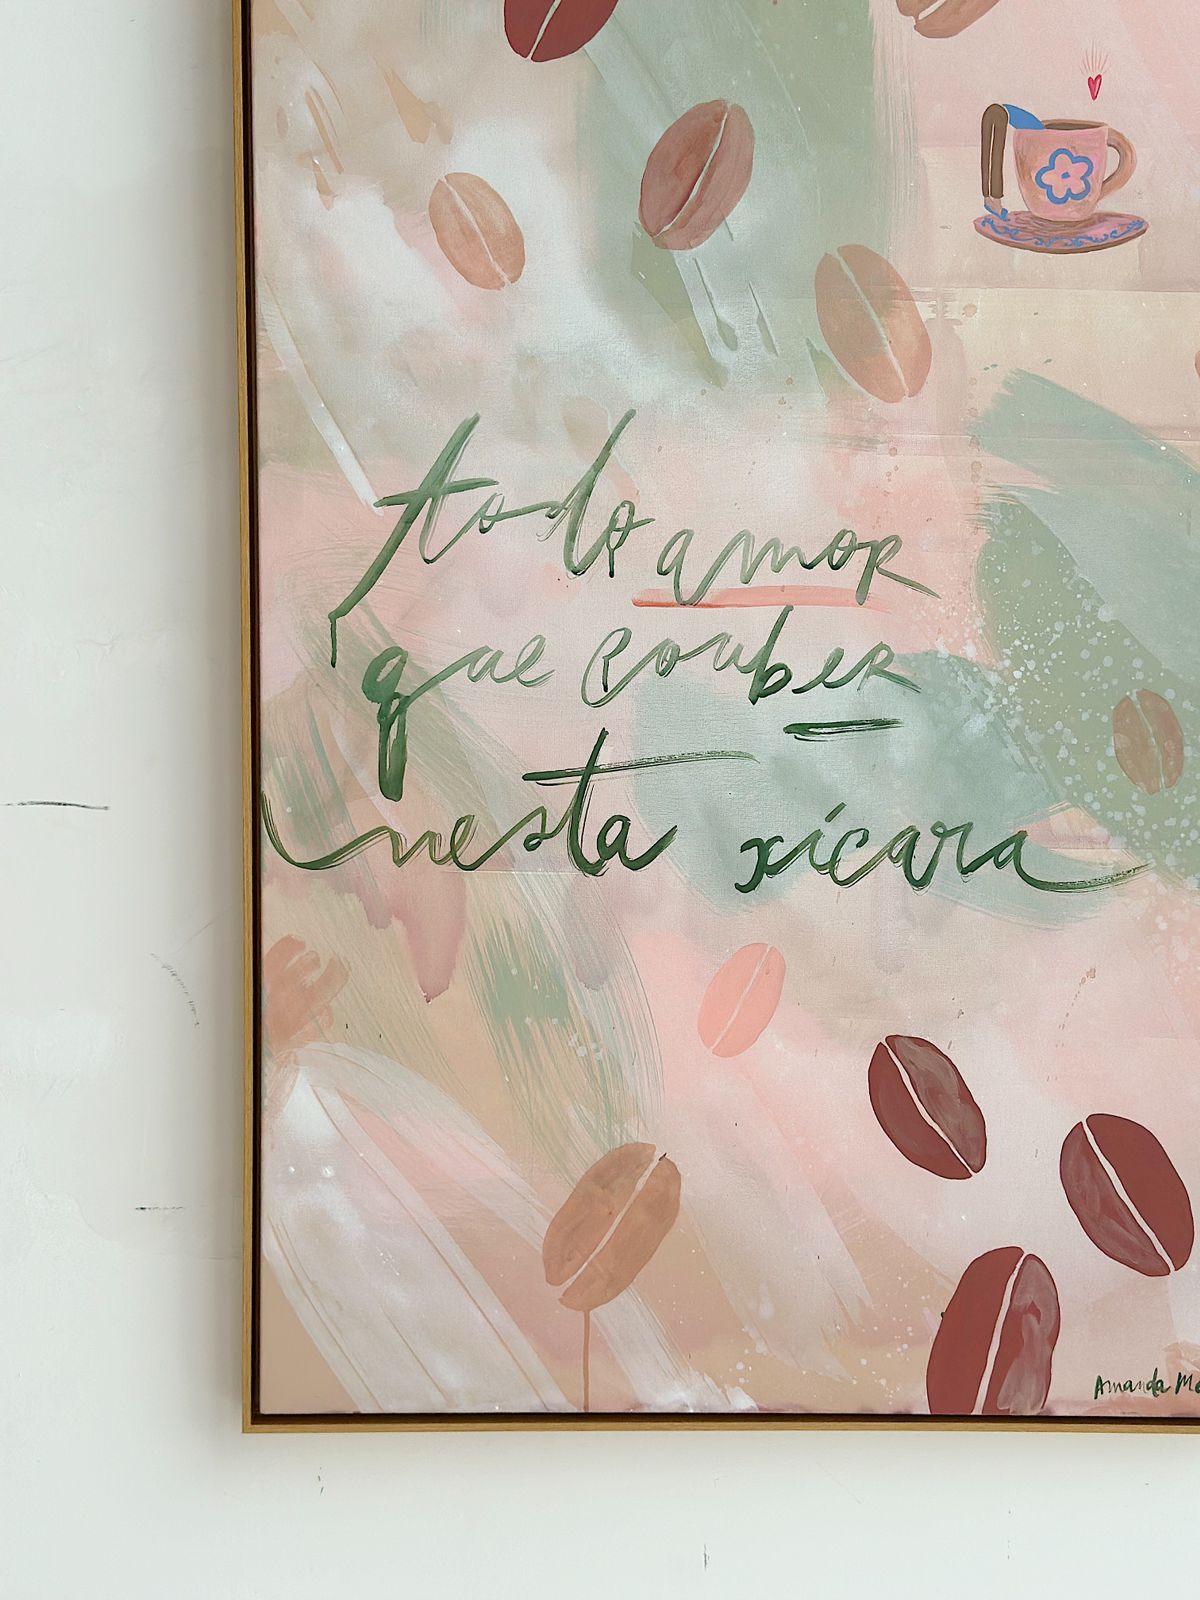 todo amor
que couber
nesta xícara
Amanda Mo